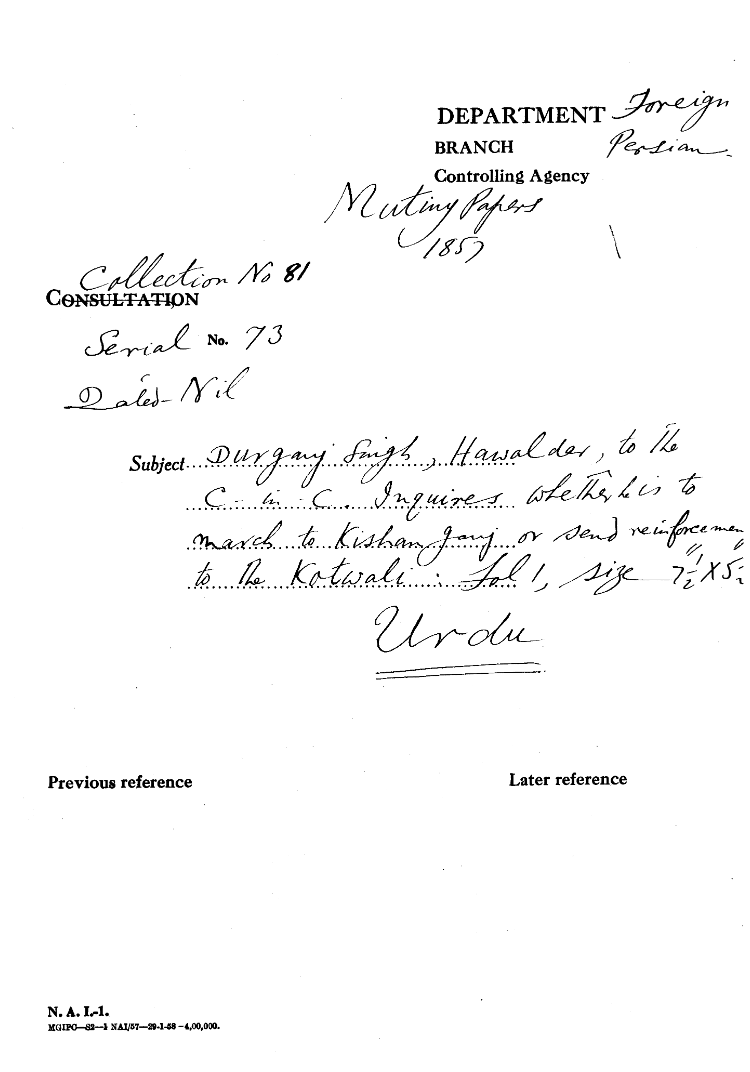 DEPARTMENT Foreign
BRANCH Persian
Controlling Agency
Mutiny Papers
1857
Collection No 81
CONSULTATION
Serial No. 73
Dated - Nil
Subject Durganj Singh, Hawalder, to the
C - in - C. Inquires whether he is to
march to Kishan ganj or send reinforcemen
to the Kotwali : Fol 1, size 7½" X 5½
Urdu
Previous reference Later reference
N. A. I.-1.
MGIPC—S2—1 NAI/57—29-1-58—4,00,000.